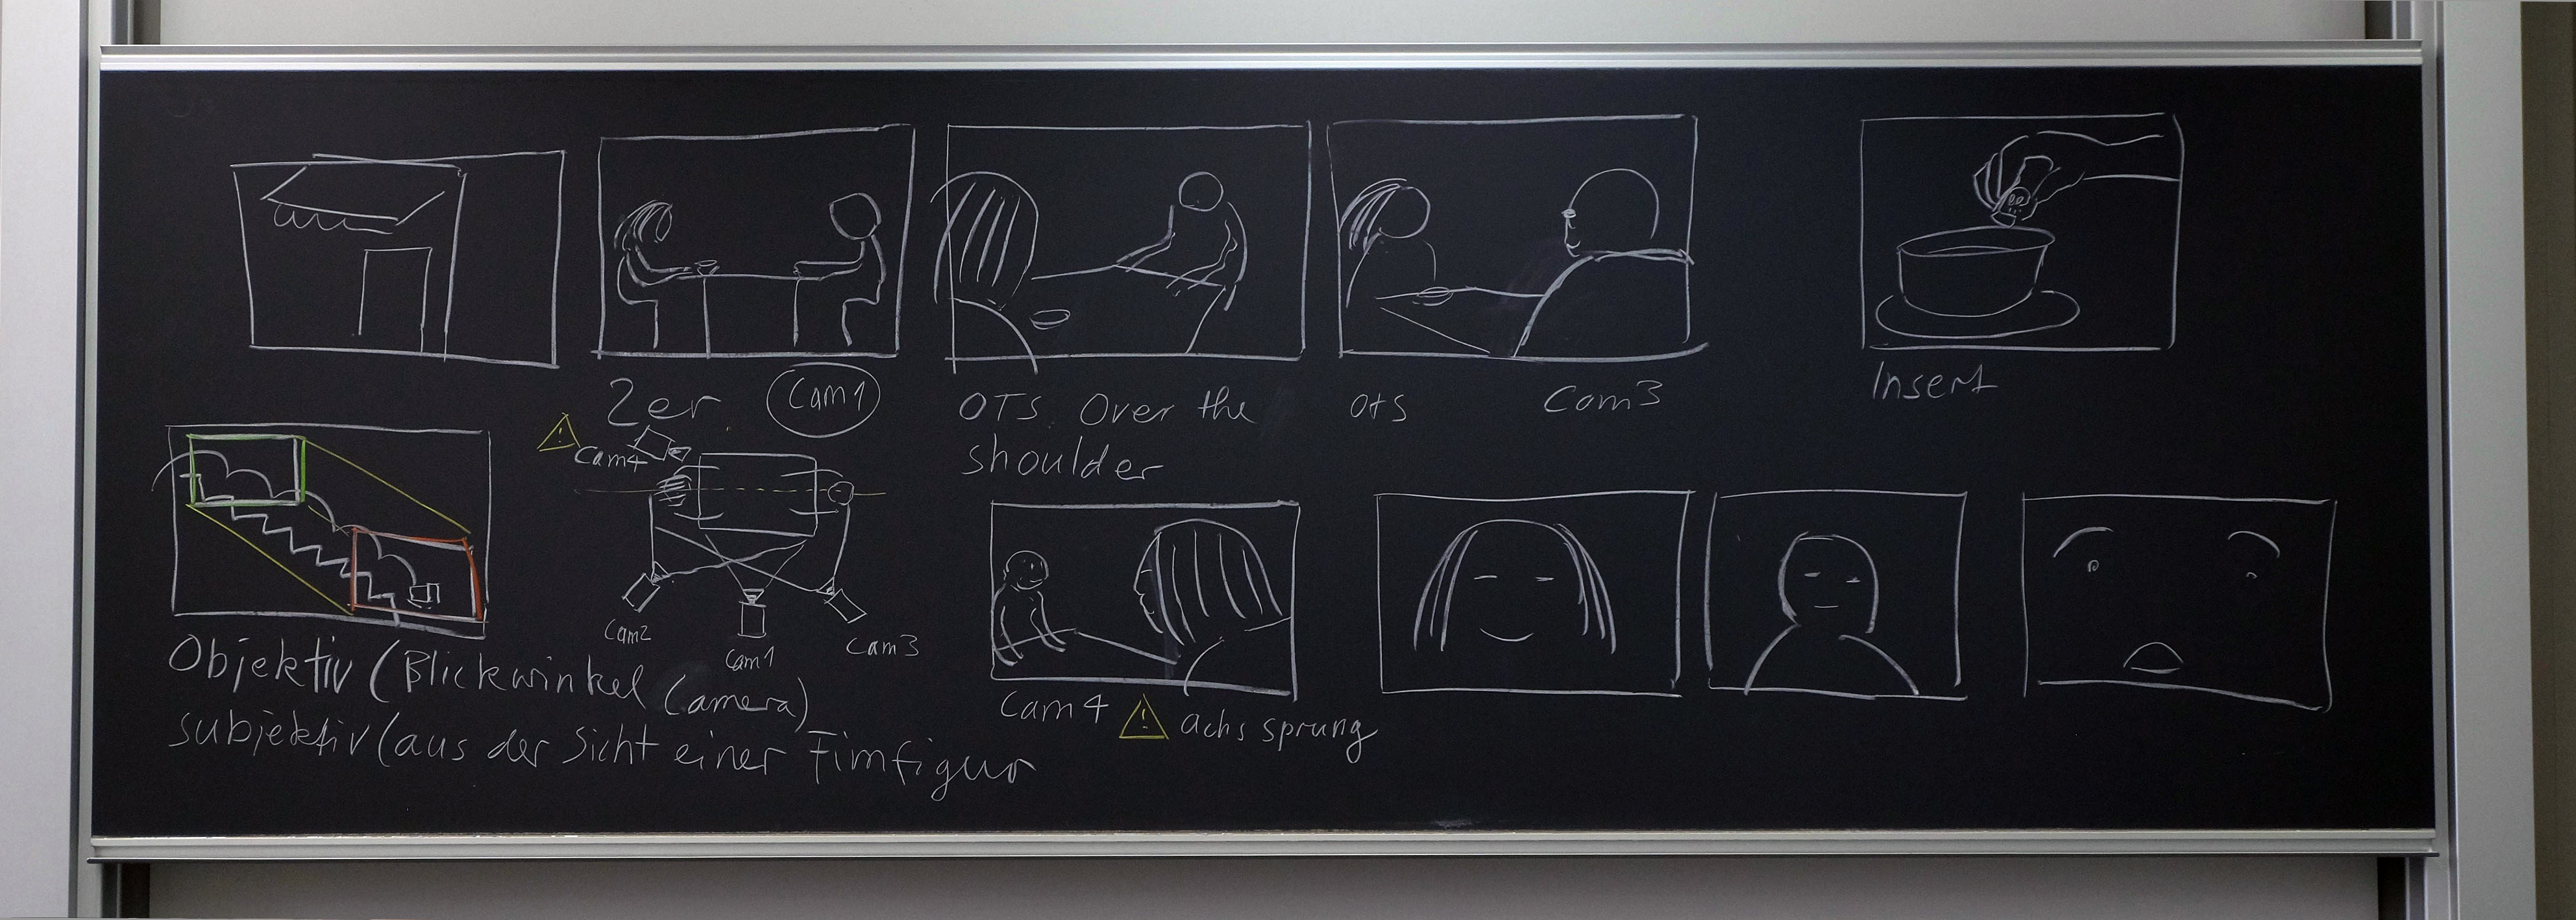 2er Cam1
OTS Over the
shoulder
OtS Cam3
Insert
!
Cam4
Cam2
Cam1
Cam3
Objektiv (Blickwinkel Camera)
subjektiv (aus der Sicht einer Fimfigur
Cam4 ! achs sprung